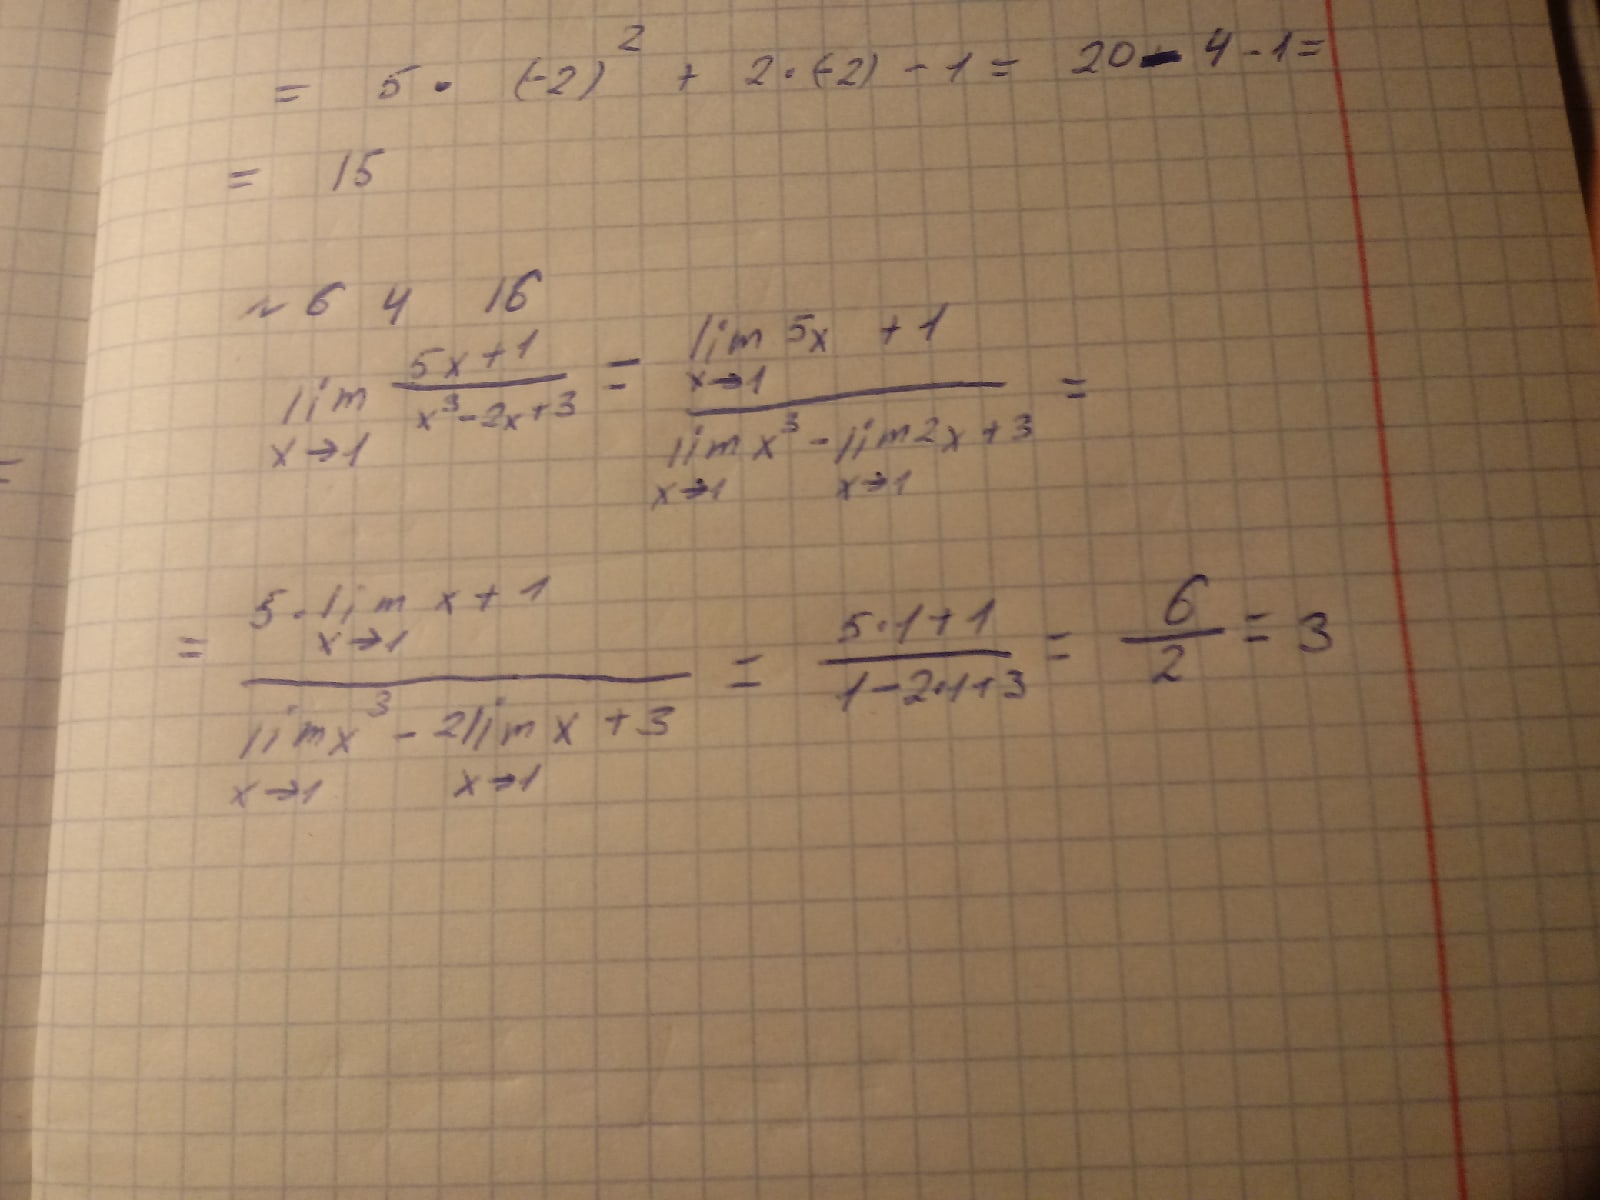 = 5 · (-2)² + 2·(-2) - 1 = 20 - 4 - 1 =
= 15
~ 6 4 16
lim x→1 (5x+1)/(x³-2x+3) = (lim x→1 5x + 1)/(lim x→1 x³ - lim x→1 2x + 3) =
= (5·lim x→1 x + 1)/(lim x→1 x³ - 2lim x→1 x + 3) = (5·1+1)/(1-2·1+3) = 6/2 = 3
=